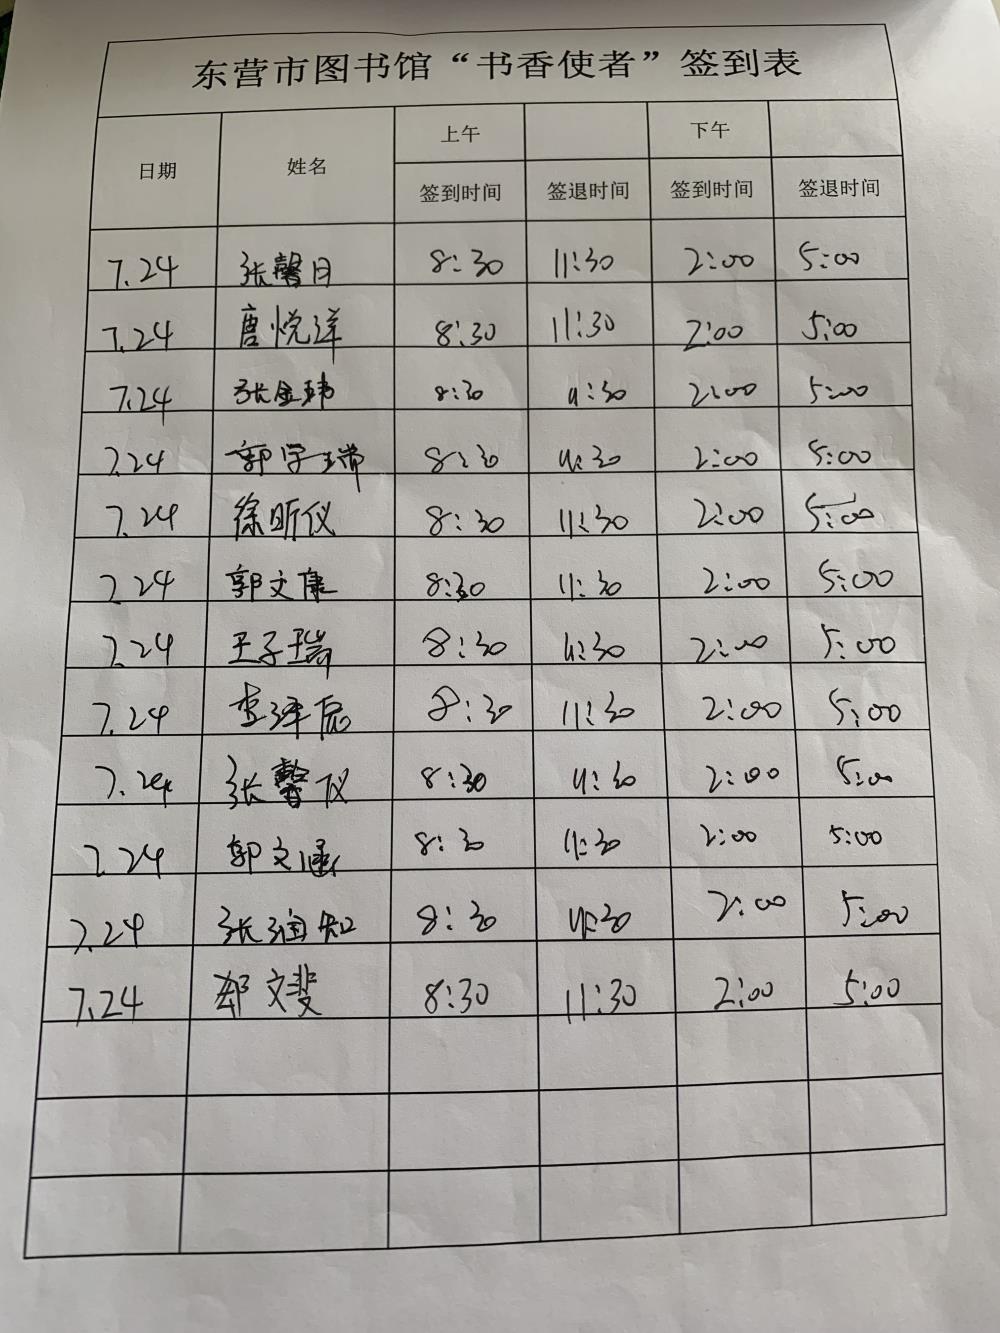 东营市图书馆“书香使者”签到表
日期 姓名 上午 下午
签到时间 签退时间 签到时间 签退时间
7.24 张馨月 8:30 11:30 2:00 5:00
7.24 唐悦洋 8:30 11:30 2:00 5:00
7.24 张金玮 8:30 11:30 2:00 5:00
7.24 郭学瑞 8:30 11:30 2:00 5:00
7.24 徐昕仪 8:30 11:30 2:00 5:00
7.24 郭文康 8:30 11:30 2:00 5:00
7.24 王子瑞 8:30 11:30 2:00 5:00
7.24 李泽宸 8:30 11:30 2:00 5:00
7.24 张馨仪 8:30 11:30 2:00 5:00
7.24 郭文涵 8:30 11:30 2:00 5:00
7.24 张润知 8:30 11:30 2:00 5:00
7.24 郑文斐 8:30 11:30 2:00 5:00